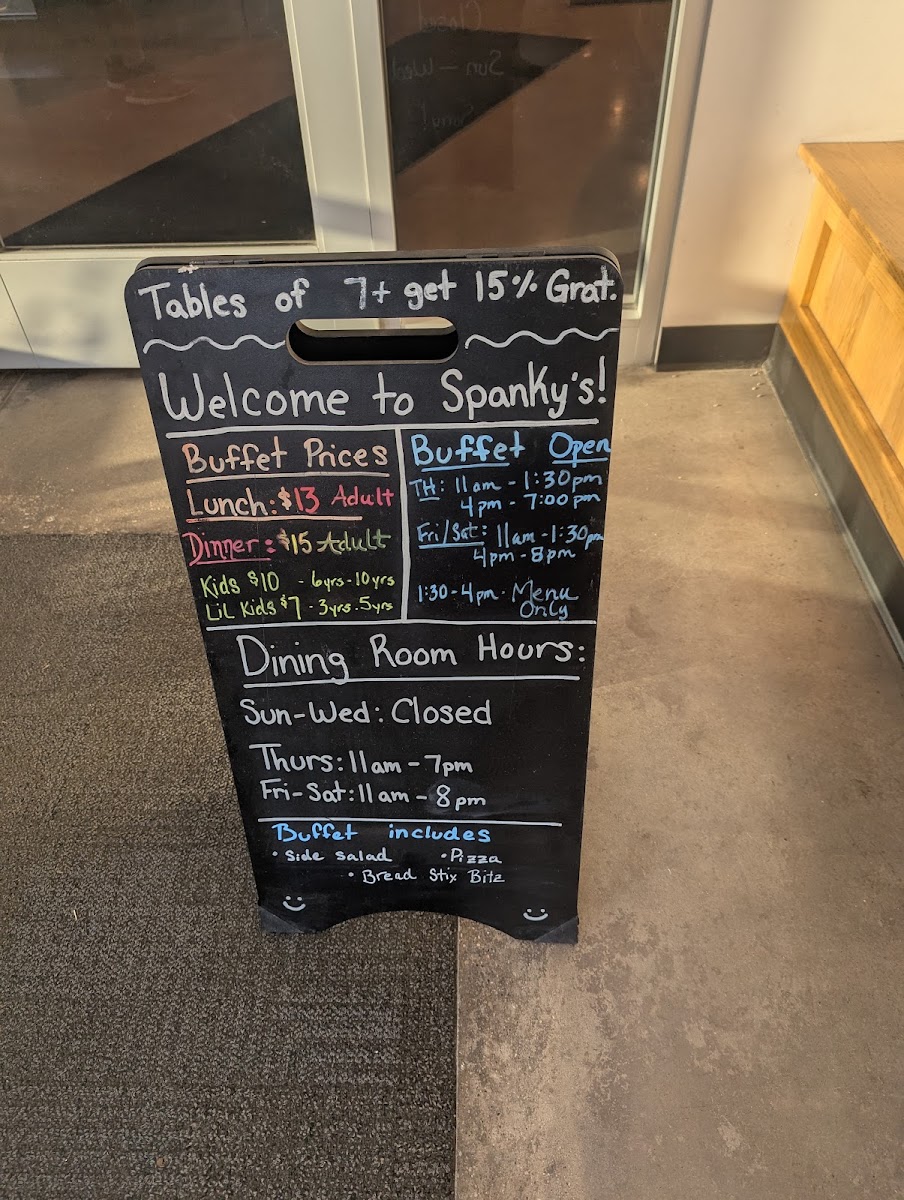 Tables of 7+ get 15% Grat.
Welcome to Spanky's!
Buffet Prices
Lunch: $13 Adult
Dinner: $15 Adult
Kids $10 - 6yrs-10yrs
Lil Kids $7 - 3yrs-5yrs
Buffet Open
TH: 11am - 1:30pm
4pm - 7:00pm
Fri/Sat: 11am - 1:30pm
4pm - 8pm
1:30-4pm - Menu
Only
Dining Room Hours:
Sun-Wed: Closed
Thurs: 11am - 7pm
Fri-Sat: 11am - 8pm
Buffet includes
• Side salad • Pizza
• Bread Stix Bitz
Closed
Sun - Wed